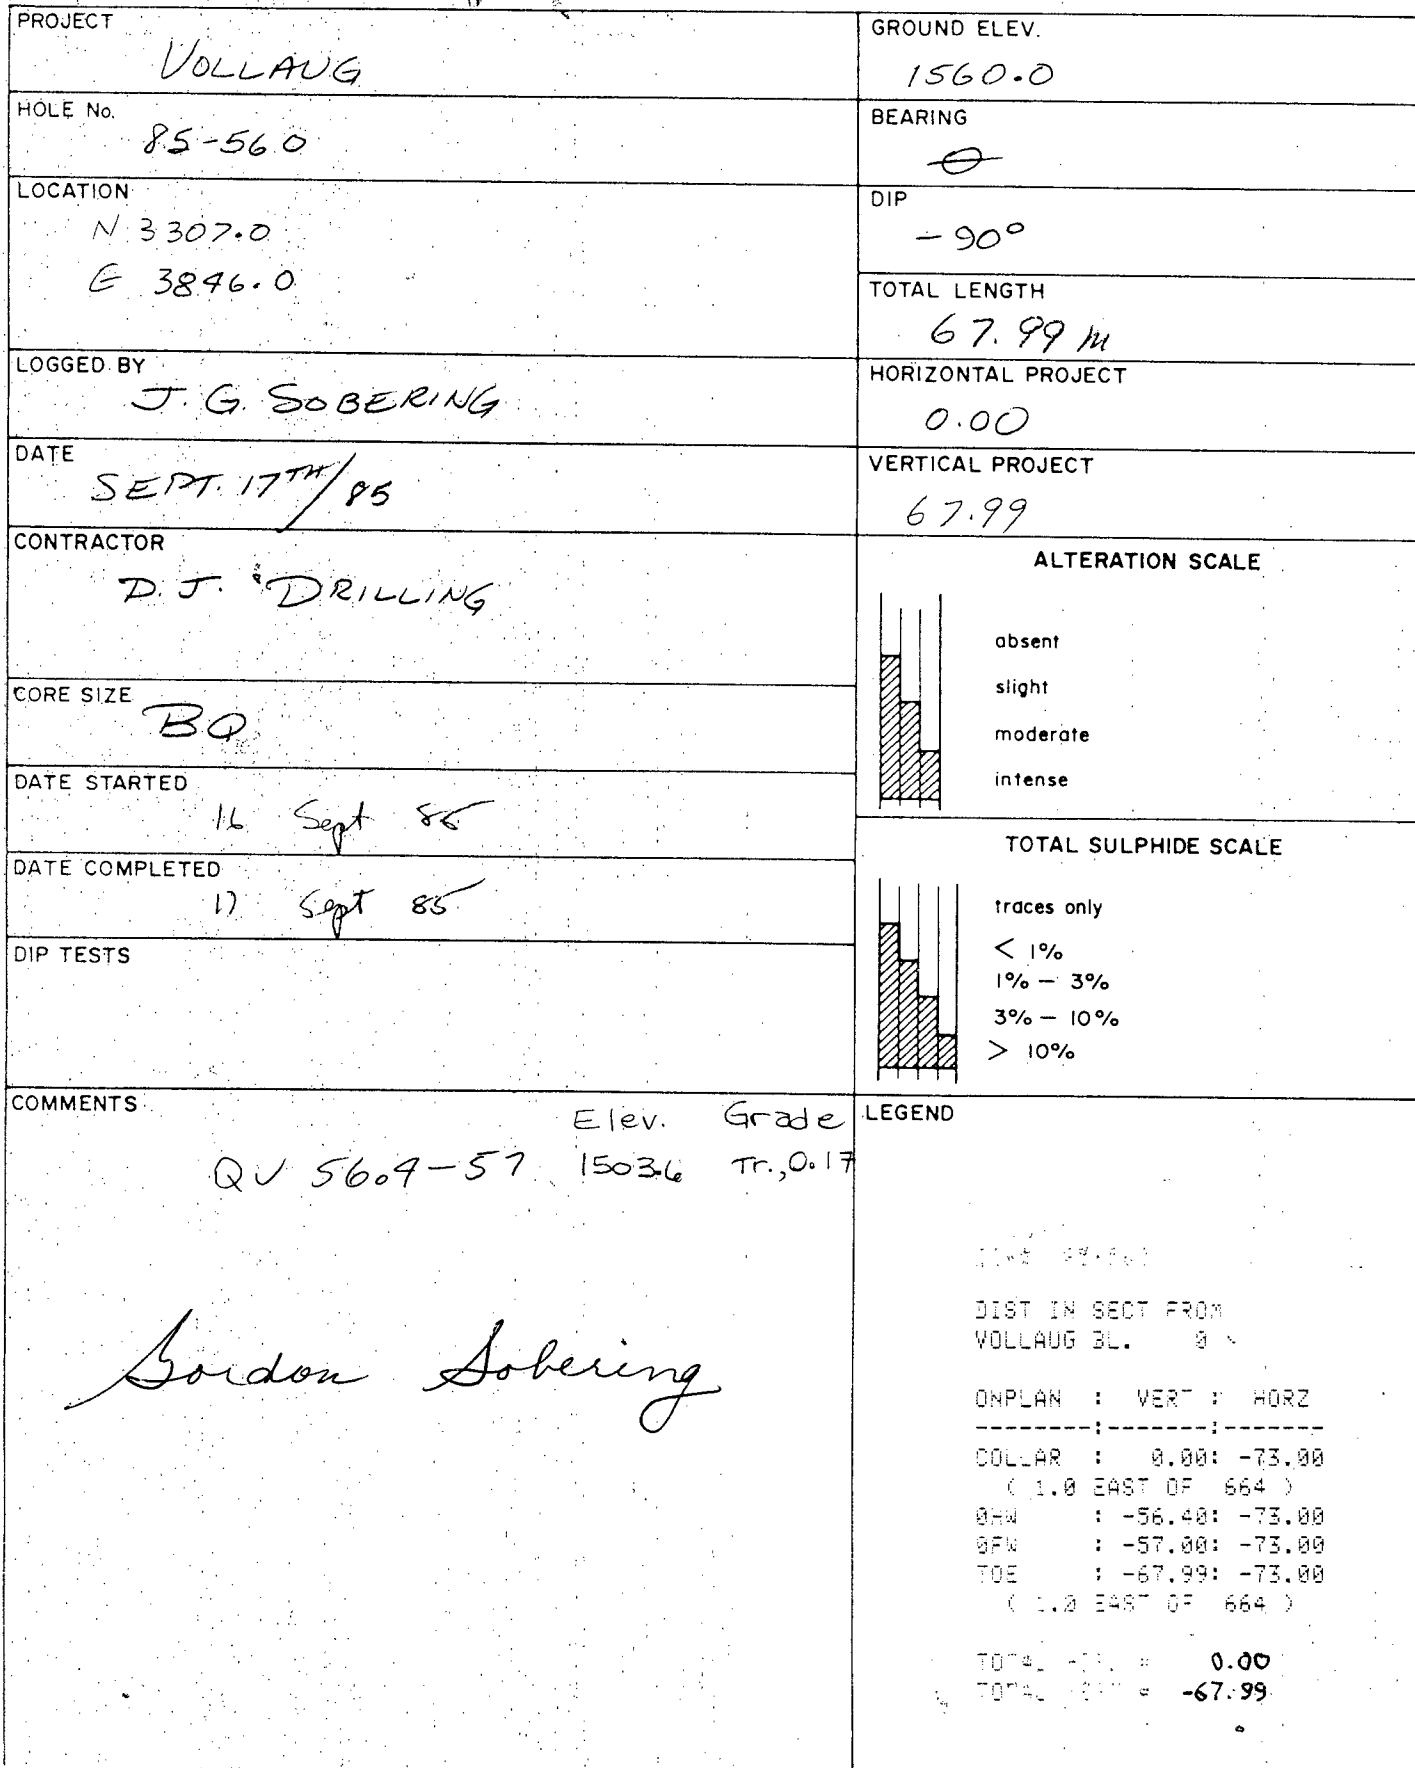 PROJECT
VOLLAUG
HOLE No.
85-56.0
LOCATION
N 3307.0
E 3846.0
LOGGED BY
J. G. SOBERING
DATE
SEPT. 17TH/85
CONTRACTOR
D. J. DRILLING
CORE SIZE
BQ
DATE STARTED
16 Sept 85
DATE COMPLETED
17 Sept 85
DIP TESTS
COMMENTS
Elev. Grade
QV 56.4-57 1503.6 Tr., 0.17
Gordon Sobering
GROUND ELEV.
1560.0
BEARING
0
DIP
-90°
TOTAL LENGTH
67.99 m
HORIZONTAL PROJECT
0.00
VERTICAL PROJECT
67.99
ALTERATION SCALE
absent
slight
moderate
intense
TOTAL SULPHIDE SCALE
traces only
< 1%
1% – 3%
3% – 10%
> 10%
LEGEND
DIST IN SECT FROM
VOLLAUG BL. 0
ONPLAN : VERT : HORZ
--------:-------:-------
COLLAR : 0.00: -73.00
( 1.0 EAST OF 664 )
0HW : -56.40: -73.00
0FW : -57.00: -73.00
TOE : -67.99: -73.00
( 1.0 EAST OF 664 )
TOTAL = 0.00
TOTAL = -67.99